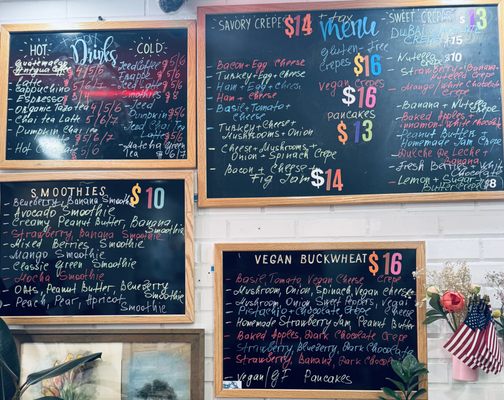 Drinks
HOT
COLD
Latte
Cappuccino
Espresso
Organic Tazo tea
Chai tea Latte 5/6/7
Pumpkin Chai
Iced Coffee 4/5/6
Frappe
Iced
Matcha Green
Tea
SMOOTHIES $10
Blueberry, Banana Smoothie
- Avocado Smoothie
- Creamy Peanut Butter, Banana
Smoothie
- Strawberry, Banana Smoothie
- Mixed Berries Smoothie
- Mango Smoothie
- Classic Green Smoothie
- Mocha Smoothie
- Oats, Peanut Butter, Blueberry
Smoothie
- Peach, Pear, Apricot
Smoothie
Menu
+ tax
SAVORY CREPES $14
- Bacon + Egg Cheese
- Turkey + Egg + Cheese
- Ham + Egg + Cheese
- Ham + Cheese
- Basil + Tomato +
Cheese
- Turkey + Cheese +
Mushrooms + Onion
- Cheese + Mushrooms +
Onion + Spinach Crepe
- Bacon + Cheese +
Fig Jam $14
Gluten-Free
Crepes $16
Vegan Crepes
$16
Pancakes
$13
SWEET CREPES $13
Chocolate Crepe
$15
- Nutella $10
- Strawberry + Banana +
Nutella
- Mango/White Chocolate
Crepe
- Banana + Nutella
- Baked Apples +
Cinnamon + White Chocolate
- Peanut Butter +
Homemade Jam Crepe
- Dulche De Leche +
Banana
White Chocolate
- Lemon + Sugar +
Butter Crepe $8
VEGAN BUCKWHEAT $16
Crepe
- Basil, Tomato, Vegan Cheese
- Mushroom, Onion, Spinach, Vegan Cheese
- Mushroom, Onion, Sweet Peppers, Vegan
- Pistachio + Chocolate Crepe Cheese
- Homemade Strawberry Jam, Peanut Butter
- Baked Apples, Dark Chocolate Crepe
- Strawberry, Blueberry, Dark Chocolate
- Strawberry, Banana, Dark Chocolate
Vegan/GF Pancakes